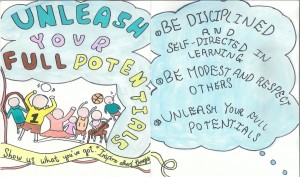 UNLEASH
YOUR
FULL POTENTIALS
1
Show us what you've got
BE DISCIPLINED
AND
SELF-DIRECTED IN
LEARNING
BE MODEST AND RESPECT
OTHERS
UNLEASH YOUR FULL
POTENTIALS